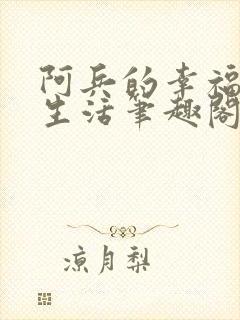 阿兵的幸福
生活笔趣阁
凉月梨